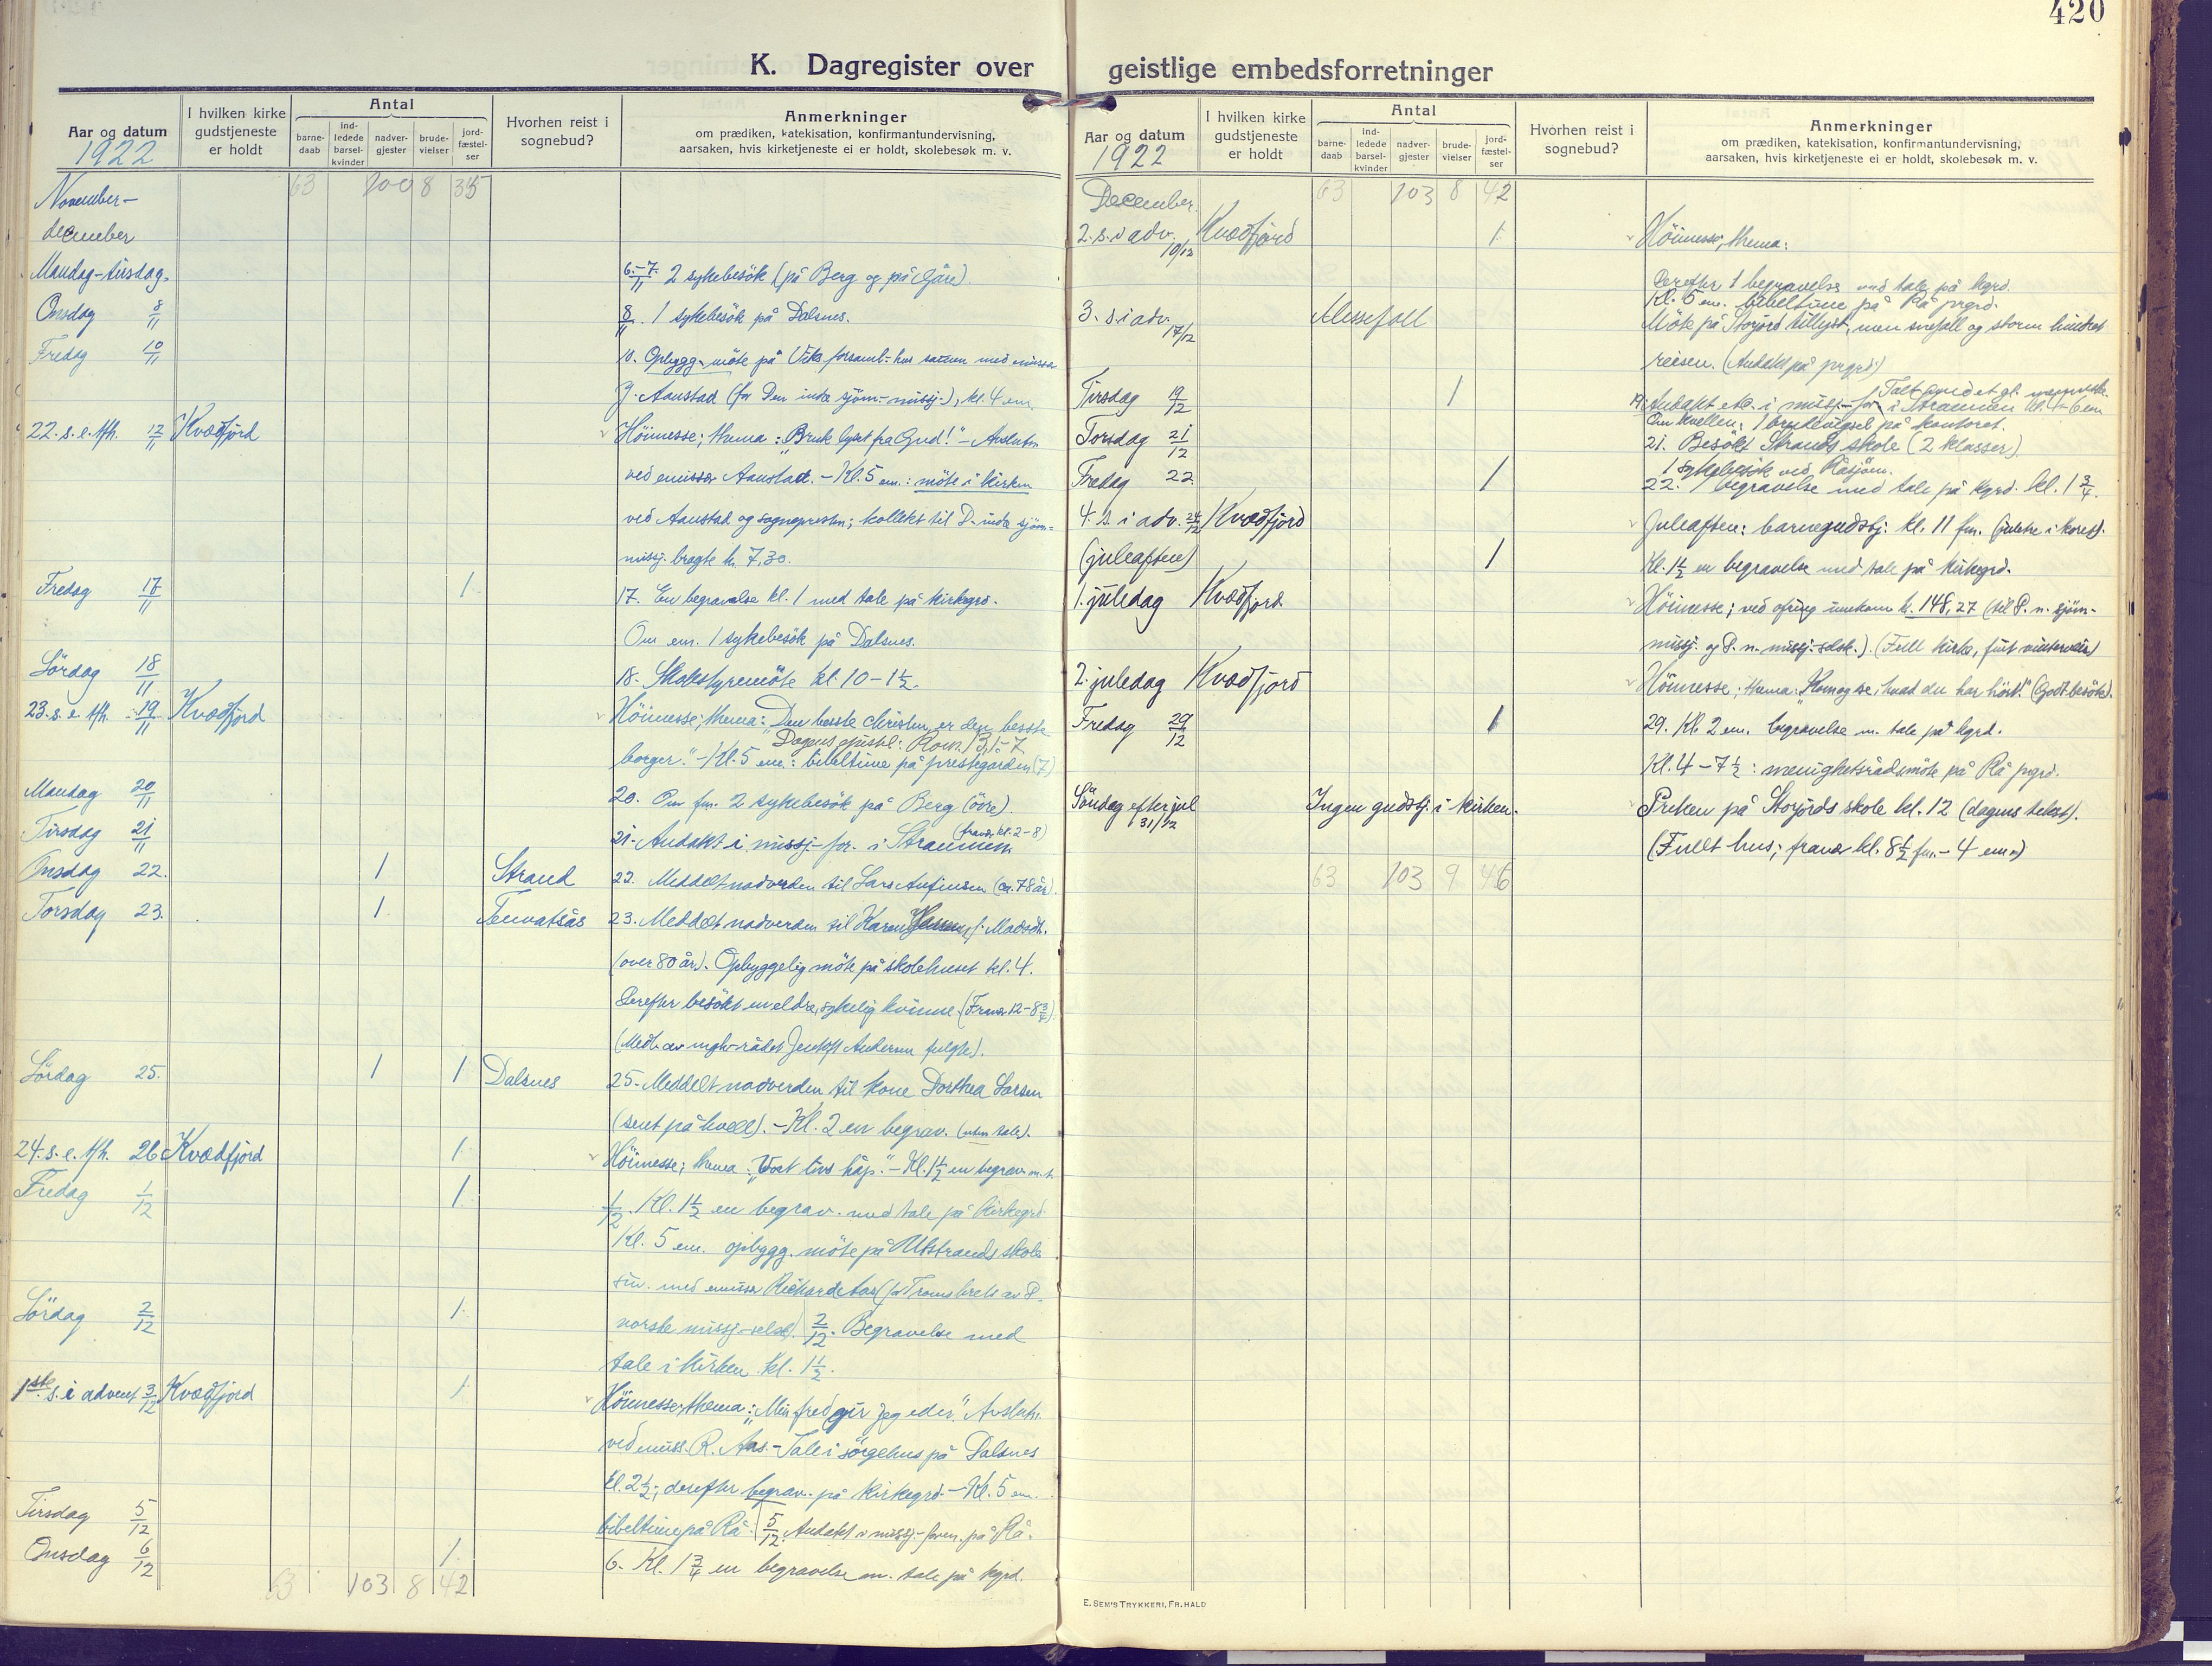 420
K. Dagregister over geistlige embedsforretninger
Aar og datum
1922
I hvilken kirke gudstjeneste er holdt
Antal
barne-daab
ind-ledede barsel-kvinder
nadver-gjester
brude-vielser
jord-fæstel-ser
Hvorhen reist i sognebud?
Anmerkninger
om prædiken, katekisation, konfirmantundervisning,
aarsaken, hvis kirketjeneste ei er holdt, skolebesøk m. v.
November– 63 100 8 35
december
Mandag–tirsdag. 6.–7./11 2 sykebesök (på Berg og på
Onsdag 8/11 8/11. 1 sykebesök på Dalsnes.
Fredag 10/11 10. Opbygg. möte på Viks forsaml.-hus sammen med emissær
J. Aanstad (for Den indre sjöm.-missj.), kl. 4 em.
22. s. e. tfh. 12/11 Kvædfjord Höimesse; thema: "Bruk lyset fra Gud!" – Avslutn.
ved emissær Aanstad. – Kl. 5 em.: möte i kirken
ved Aanstad og sognepresten; kollekt til D. indre sjöm.-
missj. bragte kr. 7,30.
Fredag 17/11 1 17. En begravelse kl. 1 med tale på kirkegrd.
Om em. 1 sykebesök på Dalsnes.
Lördag 18/11 18. Skolestyremöte kl. 10 – 1 1/2.
23. s. e. tfh. 19/11 Kvædfjord Höimesse; thema: "Den bedste christen er den bedste
borger." – Kl. 5 em.: bibeltime på prestegarden (7)
Dagens epistel: Rom. 13, 1-7
Mandag 20/11 20. Om fm. 2 sykebesök på Berg (övre).
Tirsdag 21/11 21. Andakt i missj.-for. i Straumen (fravær kl. 2–8)
Onsdag 22. 1 Strand 22. Meddelt nadverden til Lars Anfinsen (ca. 78 år).
Torsdag 23. 1 23. Meddelt nadverden til Karen Hansen, f.
(over 80 år). Opbyggelig möte på skolehuset kl. 4.
Derefter besökt en eldre, sykelig kvinne. (Fravær 12–8 3/4)
(Medl. av mgh.-rådet Jentoft Andersen fulgte).
Lördag 25. 1 1 Dalsnes 25. Meddelt nadverden til kone Dorthea Larsen
(sent på kveld). – Kl. 2 en begrav. (uten tale).
24. s. e. tfh. 26 Kvædfjord 1 Höimesse; thema: "Vort livs håp." – Kl. 1 1/2 en begrav. m. t.
Fredag 1/12 1 1/12. Kl. 1 1/2 en begrav. med tale på kirkegrd.
Kl. 5 em. opbygg. möte på Utstrands skole
sm. med emissær Richard Aas (for Troms krets av D.
norske missj.-selsk.)
Lördag 2/12 1 2/12. Begravelse med
tale i kirken kl. 1 1/2.
1ste s. i advent 3/12 Kvædfjord 1 Höimesse; thema: "Min fred gir jeg eder." Avslutn.
ved emiss. R. Aas. – Tale i sörgehus på Dalsnes
kl. 2 1/2; derefter begrav. på kirkegrd. – Kl. 5 em.
bibeltime på Rå.
Tirsdag 5/12 5/12. Andakt i missj.-foren. på Rå.
Onsdag 6/12 1 6. Kl. 1 3/4 en begravelse m. tale på kgrd.
63 103 8 42
Aar og datum
1922
I hvilken kirke gudstjeneste er holdt
Antal
barne-daab
ind-ledede barsel-kvinder
nadver-gjester
brude-vielser
jord-fæstel-ser
Hvorhen reist i sognebud?
Anmerkninger
om prædiken, katekisation, konfirmantundervisning,
aarsaken, hvis kirketjeneste ei er holdt, skolebesøk m. v.
December. 63 103 8 42
2. s. i adv. 10/12 Kvædfjord 1 Höimesse; thema:
Derefter 1 begravelse med tale på kgrd.
Kl. 5 em. bibeltime på Rå prgrd.
3. s. i adv. 17/12 Messefall Möte på Storjord tillyst, men snefall og storm hindret
reisen. (Andakt på prgrd.)
Tirsdag 19/12 1 19. Andakt etc. i missj.-for. i Straumen kl. 4–6 em.
Om kvelden: 1 brudevigsel på kontoret.
Torsdag 21/12 21. Besökt Strands skole (2 klasser).
1 sykebesök ved Råsjöen.
Fredag 22. 1 22. 1 begravelse med tale på kgrd. kl. 1 3/4.
4. s. i adv. 24/12 Kvædfjord Juleaften: barnegudstj. kl. 11 fm. (juletre i koret).
(juleaften) 1 Kl. 1 1/2 en begravelse med tale på kirkegrd.
1. juledag Kvædfjord Höimesse; ved ofring innkom kr. 148,27 (til D. n. sjöm.-
missj. og D. n. missj.-selsk.). (Full kirke, fint vinterveir)
2. juledag Kvædfjord Höimesse; thema: "Kom og se, hvad du har hört!" (Godt besökt).
Fredag 29/12 1 29. Kl. 2 em. begravelse m. tale på kgrd.
Kl. 4 – 7 1/2: menighetsrådsmöte på Rå prgrd.
Söndag efter jul 31/12 Ingen gudstj. i kirken. Preken på Storjords skole kl. 12 (dagens tekst).
(Fullt hus; fravær kl. 8 1/2 fm. – 4 em.)
63 103 9 46
E. SEM'S TRYKKERI, FR.HALD